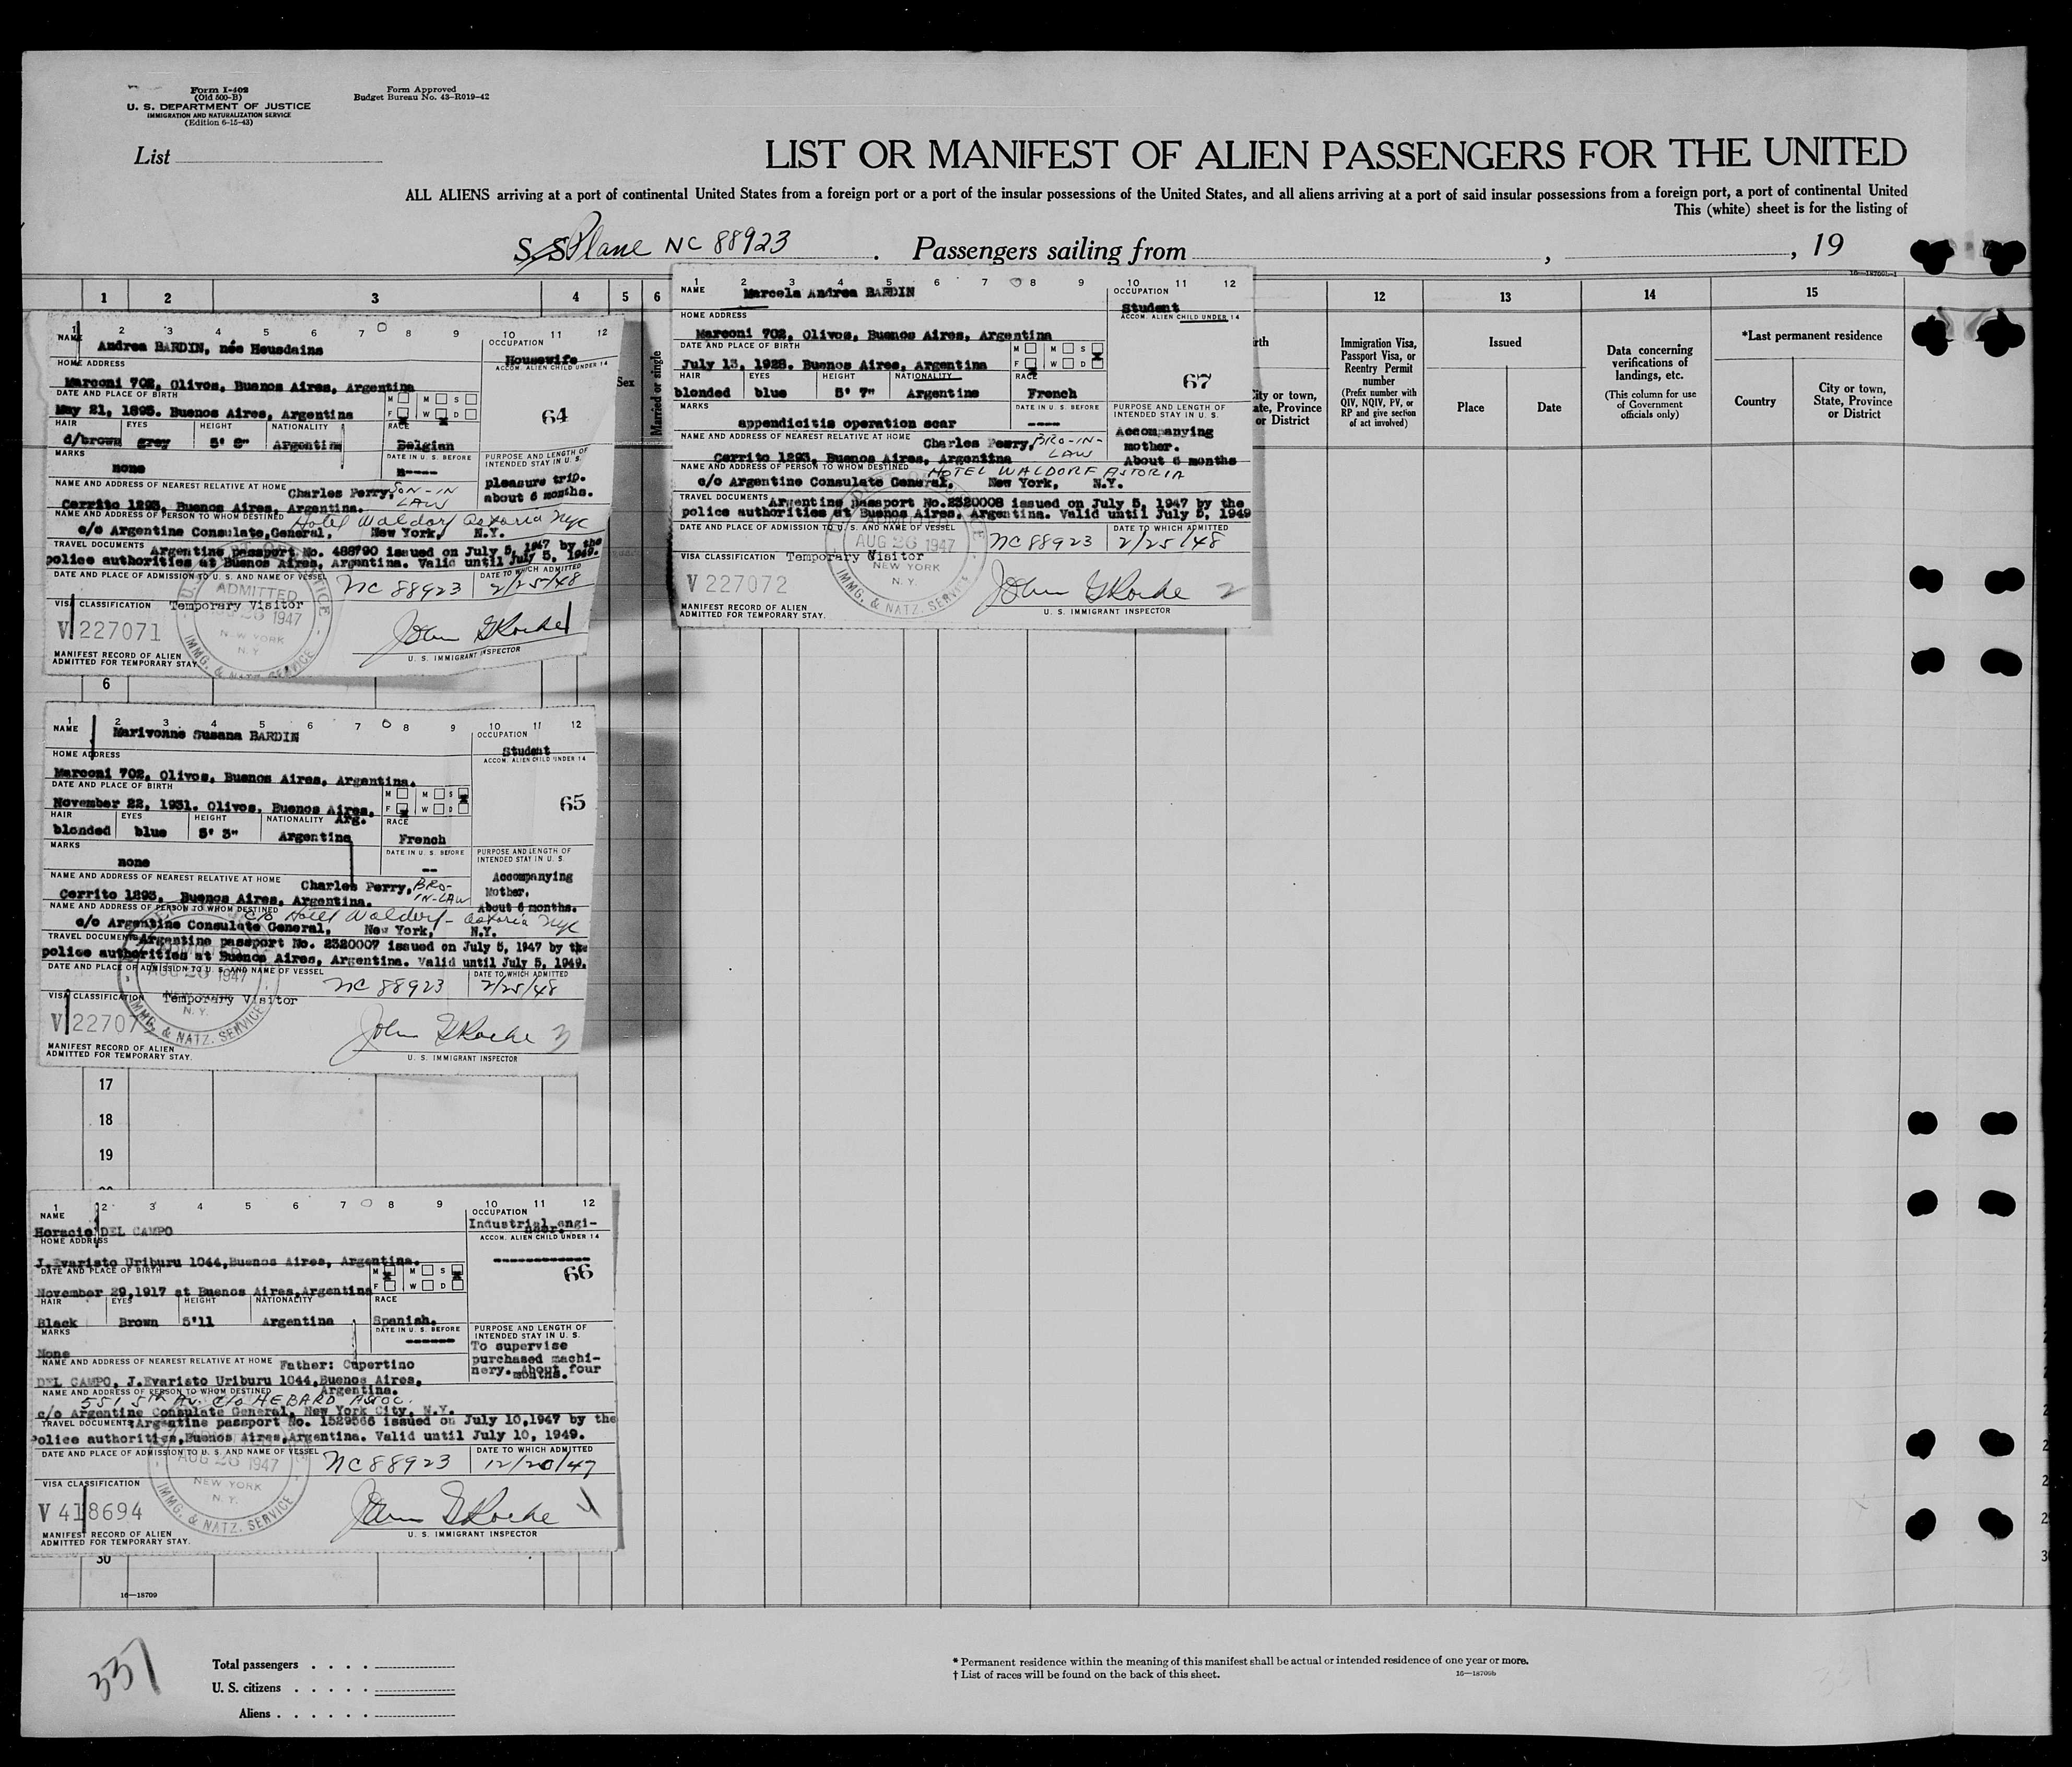 Form I-402
(Old 500-B)
U. S. DEPARTMENT OF JUSTICE
IMMIGRATION AND NATURALIZATION SERVICE
(Edition 6-15-43)
Form Approved
Budget Bureau No. 43-R019-42
List
LIST OR MANIFEST OF ALIEN PASSENGERS FOR THE UNITED
ALL ALIENS arriving at a port of continental United States from a foreign port or a port of the insular possessions of the United States, and all aliens arriving at a port of said insular possessions from a foreign port, a port of continental United
This (white) sheet is for the listing of
S. S. Plane NC 88923 . Passengers sailing from , , 19
16—18709b-1
1 2 3 4 5 6
12 13 14 15
Sex
Married or single
rth
City or town,
ate, Province
or District
Immigration Visa,
Passport Visa, or
Reentry Permit
number
(Prefix number with
QIV, NQIV, PV, or
RP and give section
of act involved)
Issued
Place Date
Data concerning
verifications of
landings, etc.
(This column for use
of Government
officials only)
*Last permanent residence
Country
City or town,
State, Province
or District
1 2 3 4 5 6 7 8 9 10 11 12
NAME Andrea BARDIN, née Heusdains
OCCUPATION
Housewife
ACCOM. ALIEN CHILD UNDER 14
HOME ADDRESS
Marconi 702, Olivos, Buenos Aires, Argentina
DATE AND PLACE OF BIRTH
M M S
F W D
May 21, 1895. Buenos Aires, Argentina
64
HAIR EYES HEIGHT NATIONALITY RACE
d/brown grey 5' 6" Argentina Belgian
MARKS
none
DATE IN U. S. BEFORE
PURPOSE AND LENGTH OF
INTENDED STAY IN U. S.
pleasure trip.
about 6 months.
NAME AND ADDRESS OF NEAREST RELATIVE AT HOME Charles Perry, SON-IN LAW
Cerrito 1293, Buenos Aires, Argentina.
NAME AND ADDRESS OF PERSON TO WHOM DESTINED Hotel Waldorf Astoria NYC
c/o Argentine Consulate,General, New York, N.Y.
TRAVEL DOCUMENTS Argentine passport No. 488790 issued on July 5, 1947 by the
police authorities at Buenos Aires, Argentina. Valid until July 5, 1949.
DATE AND PLACE OF ADMISSION TO U. S. AND NAME OF VESSEL NC 88923
DATE TO WHICH ADMITTED
2/25/48
VISA CLASSIFICATION Temporary Visitor
ADMITTED
1947
NEW YORK
N. Y.
IMMG. & NATZ. SERVICE
V 227071
MANIFEST RECORD OF ALIEN
ADMITTED FOR TEMPORARY STAY.
U. S. IMMIGRANT INSPECTOR
1 2 3 4 5 6 7 8 9 10 11 12
NAME Marcela Andrea BARDIN
OCCUPATION
Student
ACCOM. ALIEN CHILD UNDER 14
HOME ADDRESS
Marconi 702, Olivos, Buenos Aires, Argentina
DATE AND PLACE OF BIRTH
M M S
F W D
July 13, 1928. Buenos Aires, Argentina
67
HAIR EYES HEIGHT NATIONALITY RACE
blonded blue 5' 7" Argentine French
MARKS
appendicitis operation scar
DATE IN U. S. BEFORE
----
PURPOSE AND LENGTH OF
INTENDED STAY IN U. S.
Accompanying
mother.
About 6 months
NAME AND ADDRESS OF NEAREST RELATIVE AT HOME Charles Perry, BRO-IN-LAW
Cerrito 1293, Buenos Aires, Argentina
NAME AND ADDRESS OF PERSON TO WHOM DESTINED HOTEL WALDORF ASTORIA
c/o Argentine Consulate General, New York, N.Y.
TRAVEL DOCUMENTS Argentine passport No.2320008 issued on July 5, 1947 by the
police authorities at Buenos Aires, Argentina. Valid until July 5, 1949
DATE AND PLACE OF ADMISSION TO U. S. AND NAME OF VESSEL NC 88923
DATE TO WHICH ADMITTED
2/25/48
ADMITTED
AUG 26 1947
NEW YORK
N. Y.
IMMG. & NATZ. SERVICE
VISA CLASSIFICATION Temporary Visitor
V 227072
MANIFEST RECORD OF ALIEN
ADMITTED FOR TEMPORARY STAY.
2
U. S. IMMIGRANT INSPECTOR
6
1 2 3 4 5 6 7 8 9 10 11 12
NAME Marivonne Susana BARDIN
OCCUPATION
Student
ACCOM. ALIEN CHILD UNDER 14
HOME ADDRESS
Marconi 702, Olivos, Buenos Aires, Argentina.
DATE AND PLACE OF BIRTH
M M S
F W D
November 22, 1931. Olivos, Buenos Aires, Arg.
65
HAIR EYES HEIGHT NATIONALITY RACE
blonded blue 5' 3" Argentina French
MARKS
none
DATE IN U. S. BEFORE
--
PURPOSE AND LENGTH OF
INTENDED STAY IN U. S.
Accompanying
Mother.
About 6 months.
NAME AND ADDRESS OF NEAREST RELATIVE AT HOME Charles Perry, BRO-IN-LAW
Cerrito 1293, Buenos Aires, Argentina.
NAME AND ADDRESS OF PERSON TO WHOM DESTINED c/o Hotel Waldorf-Astoria NYC
c/o Argentine Consulate General, New York, N.Y.
TRAVEL DOCUMENTS Argentine passport No. 2320007 issued on July 5, 1947 by the
police authorities at Buenos Aires, Argentina. Valid until July 5, 1949.
DATE AND PLACE OF ADMISSION TO U. S. AND NAME OF VESSEL NC 88923
DATE TO WHICH ADMITTED
2/25/48
AUG 26 1947
N. Y.
IMMG. & NATZ. SERVICE
VISA CLASSIFICATION Temporary Visitor
3
MANIFEST RECORD OF ALIEN
ADMITTED FOR TEMPORARY STAY.
U. S. IMMIGRANT INSPECTOR
17
18
19
1 2 3 4 5 6 7 8 9 10 11 12
NAME
Horacio DEL CAMPO
OCCUPATION
Industrial engi-
neer.
ACCOM. ALIEN CHILD UNDER 14
HOME ADDRESS
J.Evaristo Uriburu 1044,Buenos Aires, Argentina.
DATE AND PLACE OF BIRTH
M M S
F W D
November 29,1917 at Buenos Aires,Argentina
66
HAIR EYES HEIGHT NATIONALITY RACE
Black Brown 5'11 Argentina Spanish.
MARKS
None
DATE IN U. S. BEFORE
------
PURPOSE AND LENGTH OF
INTENDED STAY IN U. S.
To supervise
purchased machi-
nery. About four
months.
NAME AND ADDRESS OF NEAREST RELATIVE AT HOME Father: Cupertino
DEL CAMPO, J.Evaristo Uriburu 1044,Buenos Aires,
Argentina.
NAME AND ADDRESS OF PERSON TO WHOM DESTINED
551 5th Av. c/o HEBARD ASSOC.
c/o Argentine Consulate General, New York City, N.Y.
TRAVEL DOCUMENTS Argentine passport No. 1529566 issued on July 10,1947 by the
Police authorities,Buenos Aires,Argentina. Valid until July 10, 1949.
DATE AND PLACE OF ADMISSION TO U. S. AND NAME OF VESSEL NC88923
DATE TO WHICH ADMITTED
12/20/47
AUG 26 1947
NEW YORK
N. Y.
IMMG. & NATZ. SERVICE
VISA CLASSIFICATION
V 418694
MANIFEST RECORD OF ALIEN
ADMITTED FOR TEMPORARY STAY.
U. S. IMMIGRANT INSPECTOR
30
16—18709
331
Total passengers . . . .
U. S. citizens . . . . .
Aliens . . . . . .
* Permanent residence within the meaning of this manifest shall be actual or intended residence of one year or more.
† List of races will be found on the back of this sheet.
16—18709b